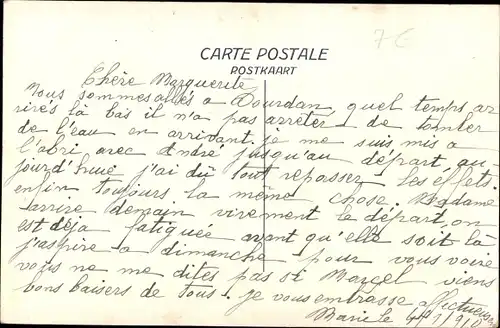 7€
CARTE POSTALE
POSTKAART
Chère Marguerite
Nous sommes allés a Dourdan, quel temps ar
rivés là bas il n'a pas arrêter de tomber
de l'eau en arrivant, je me suis mis a
l'abri avec André jusqu'au départ, au
jourd'huie j'ai dû tout repasser les effets
enfin toujours la même chose. Madame
arrive demain virement le départ, on
est déja fatiguée avant qu'elle soit là
j'aspire a dimanche pour vous voire
vous ne me dites pas si Marcel viens
bons baisers de tous. je vous embrasse affectueuse
Marie le